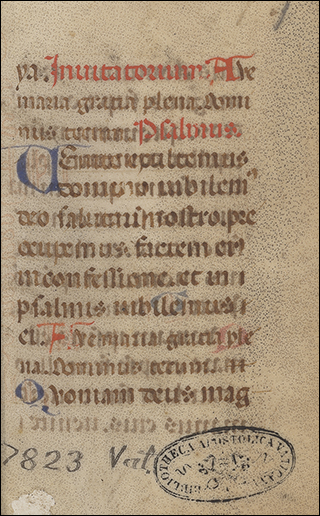 ya. Inuitatorium. Aue
maria gratia plena domi
nus tecum. Psalmus.
Uenite exultemus
domino iubilem⁹
deo salutari nostro pre
occupemus faciem ei⁹
in confessione. et in
psalmis iubilemus
ei. Aue maria gratia ple
na. Dominus tecum.
Quoniam deus mag
7823 Vat
BIBLIOTHECA APOSTOLICA VATICANA